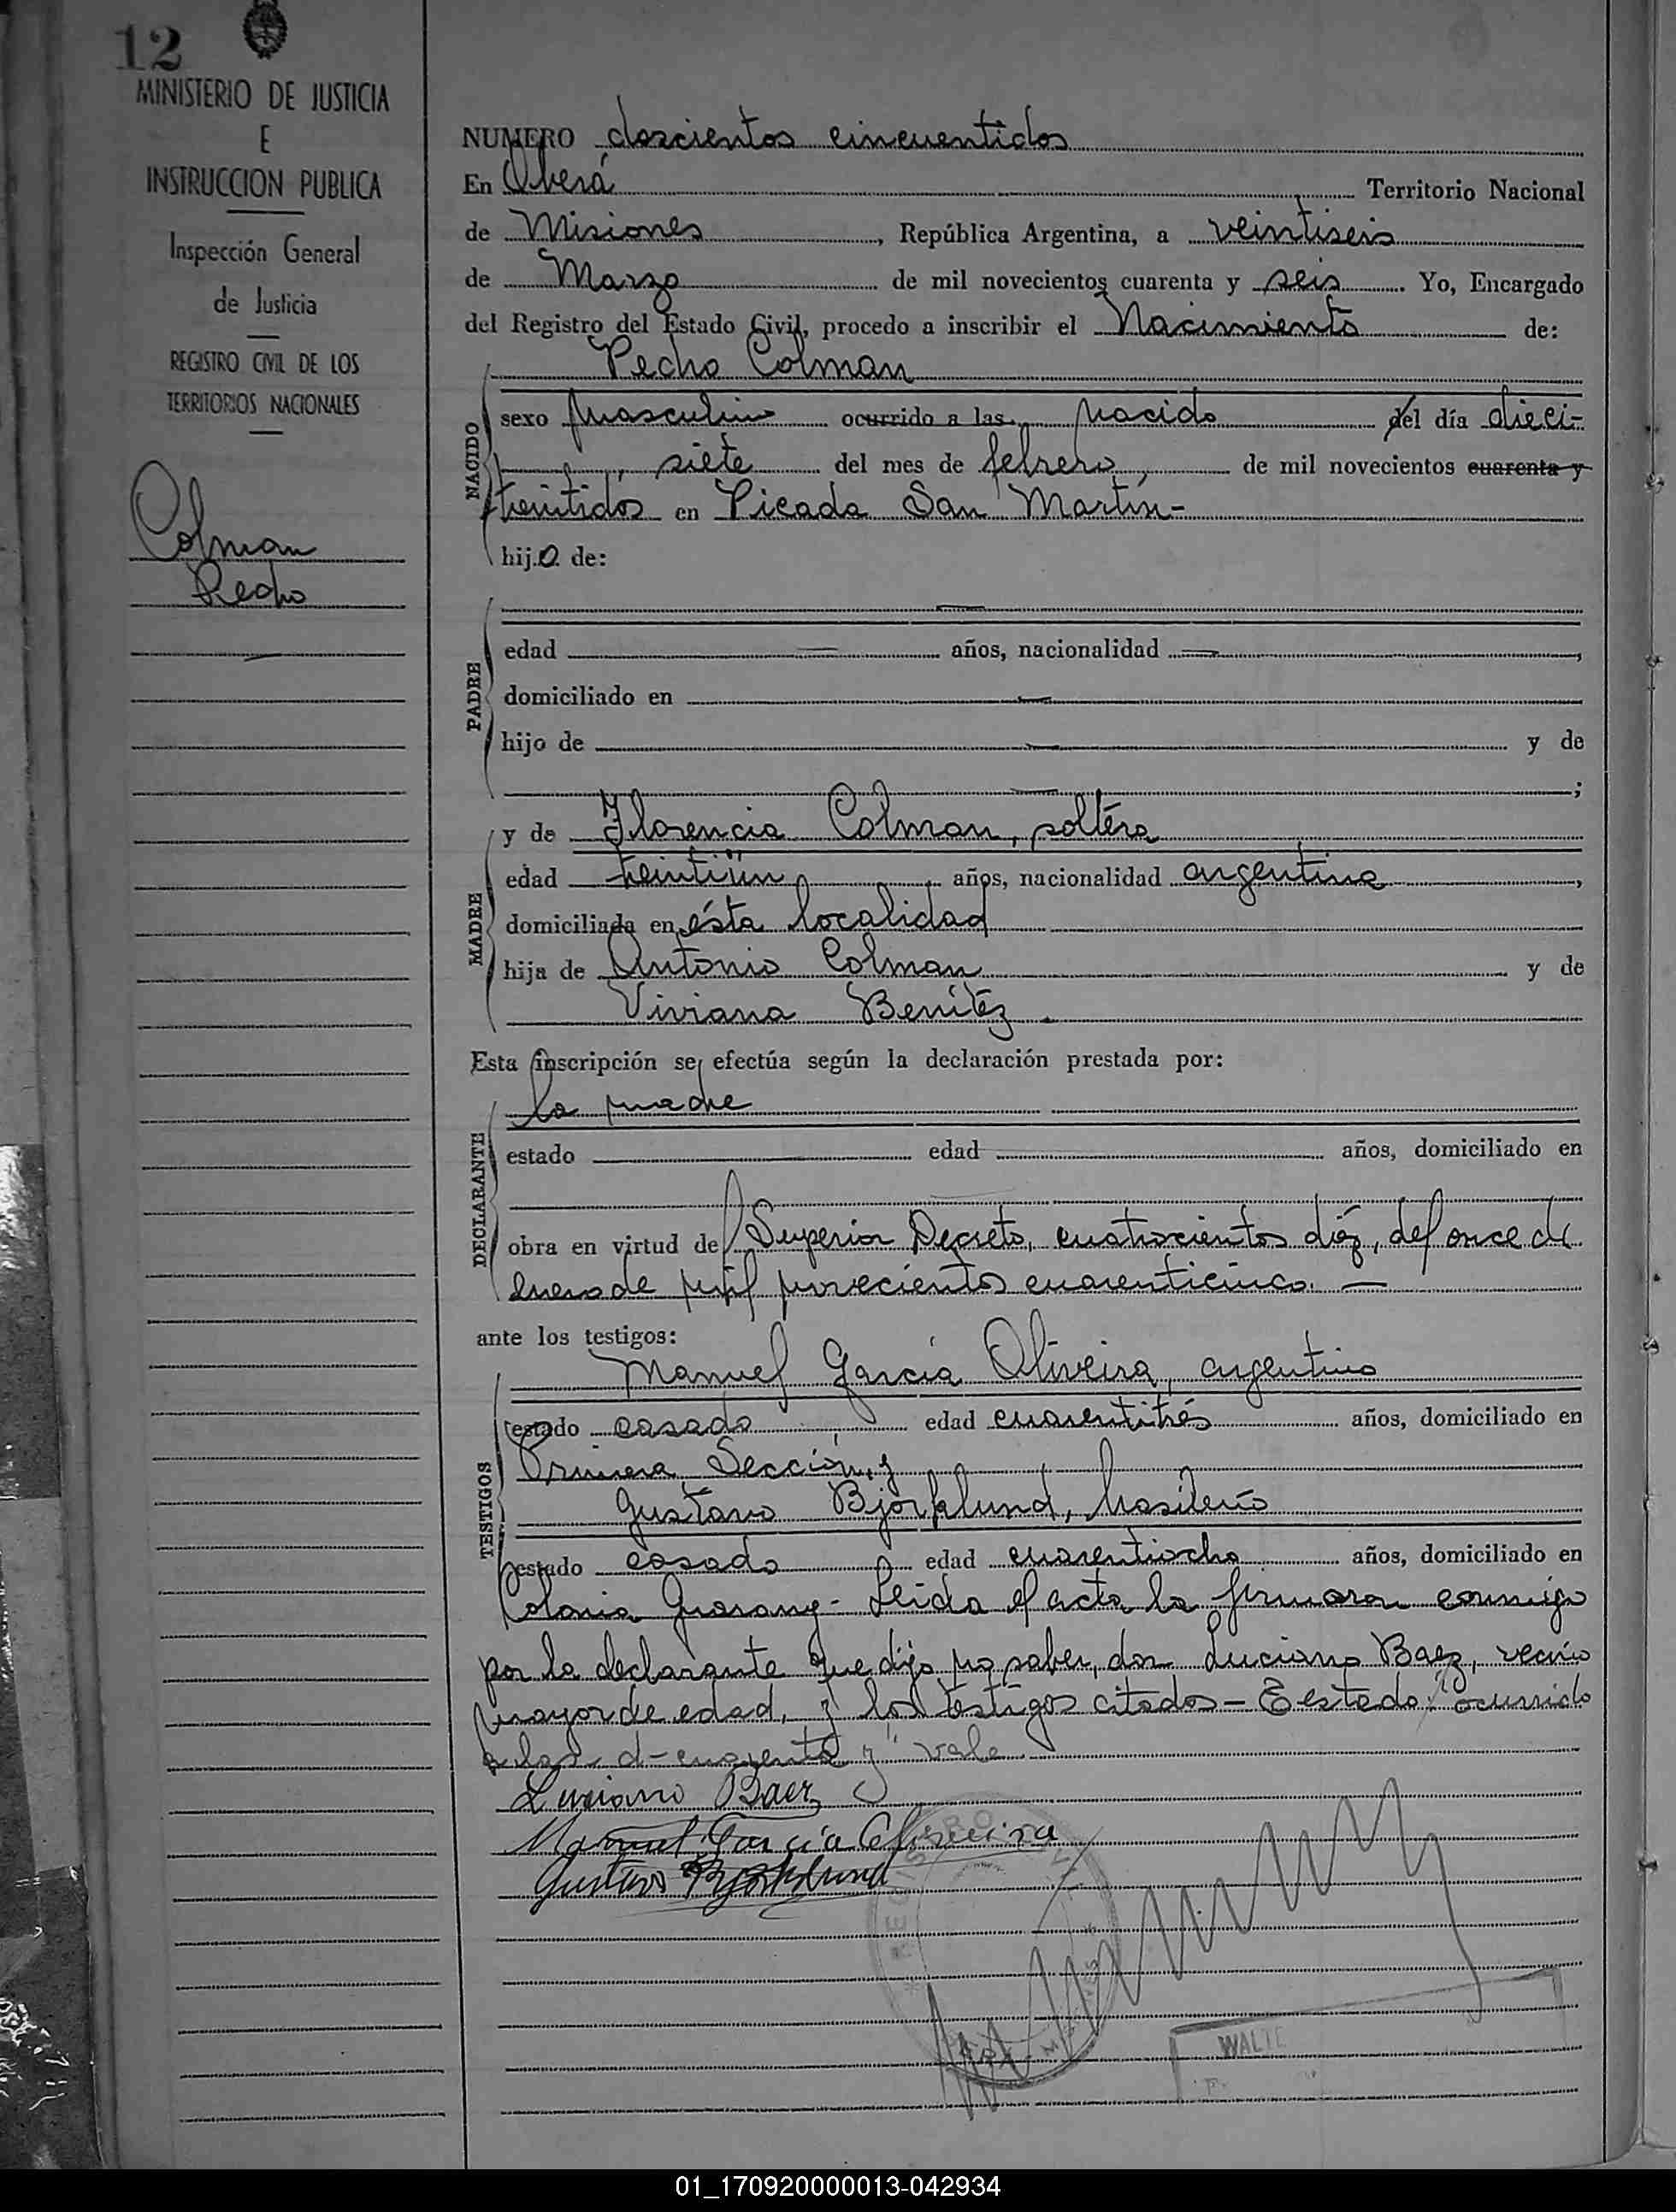 12
MINISTERIO DE JUSTICIA
E
INSTRUCCION PUBLICA
Inspección General
de Justicia
REGISTRO CIVIL DE LOS
TERRITORIOS NACIONALES
Colman
Pedro
NUMERO doscientos cincuentidos
En Oberá Territorio Nacional
de Misiones, República Argentina, a veintiseis
de Marzo de mil novecientos cuarenta y seis. Yo, Encargado
del Registro del Estado Civil, procedo a inscribir el Nacimiento de:
Pedro Colman
NACIDO
sexo masculino ocurrido a las nacido del día dieci-
siete del mes de febrero, de mil novecientos cuarenta y
treintidós en Picada San Martín-
hijo de:
PADRE
edad — años, nacionalidad —,
domiciliado en —
hijo de — y de
—;
MADRE
y de Florencia Colman, soltera
edad treintiún años, nacionalidad argentina,
domiciliada en ésta localidad
hija de Antonio Colman y de
Viviana Benítez.
Esta inscripción se efectúa según la declaración prestada por:
DECLARANTE
la madre
estado edad años, domiciliado en
obra en virtud del Superior Decreto, cuatrocientos diéz, del once de
enero de mil novecientos cuarenticinco. —
ante los testigos:
TESTIGOS
Manuel García Oliveira, argentino
estado casado edad cuarentitrés años, domiciliado en
Primera Sección, y
Gustavo Bjorklund, brasileño
estado casado edad cuarentiocho años, domiciliado en
Colonia Guarany- Leída el acta la firmaron conmigo
por la declarante que dijo no saber, don Luciano Baez, vecino
mayor de edad, y los testigos citados- E estado: "ocurrido
a las- d- cuarenta y" vale
Luciano Baez
Manuel García Oliveira
Gustavo Bjorklund
WALTE
01_170920000013-042934